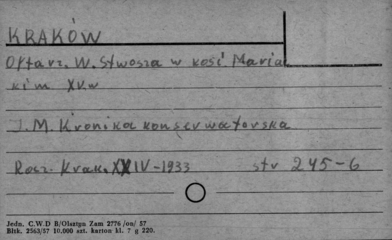 KRAKÓW
Ołtarz. W. Stwosza w kość Mariac
kim XV.w
J.M. Kronika konserwatorska
Rocz. Krak. XXIV-1933 str 245-6
Jedn. C.W.D B/Olsztyn Zam 2776 /on/ 57
Bltk. 2563/57 10.000 szt. karton kl. 7 g 220.